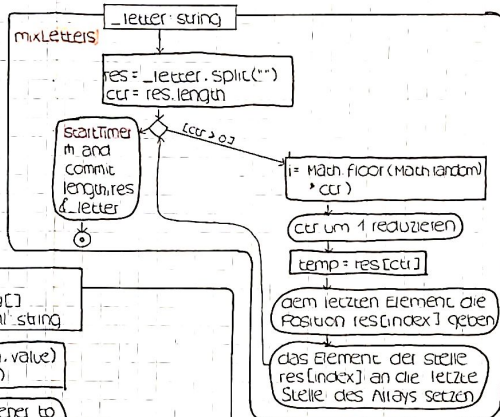 _letter: string
mixLetters
res = _letter.split("")
ctr = res.length
[ctr > 0]
startTimer
and
commit
length, res
& _letter
i = Math.floor(Math.random()
* ctr)
ctr um 1 reduzieren
temp = res[ctr]
dem letzten Element die
Position res[index] geben
das Element der Stelle
res[index] an die letzte
Stelle des Arrays setzen
g[]
string
, value)
)
ener to